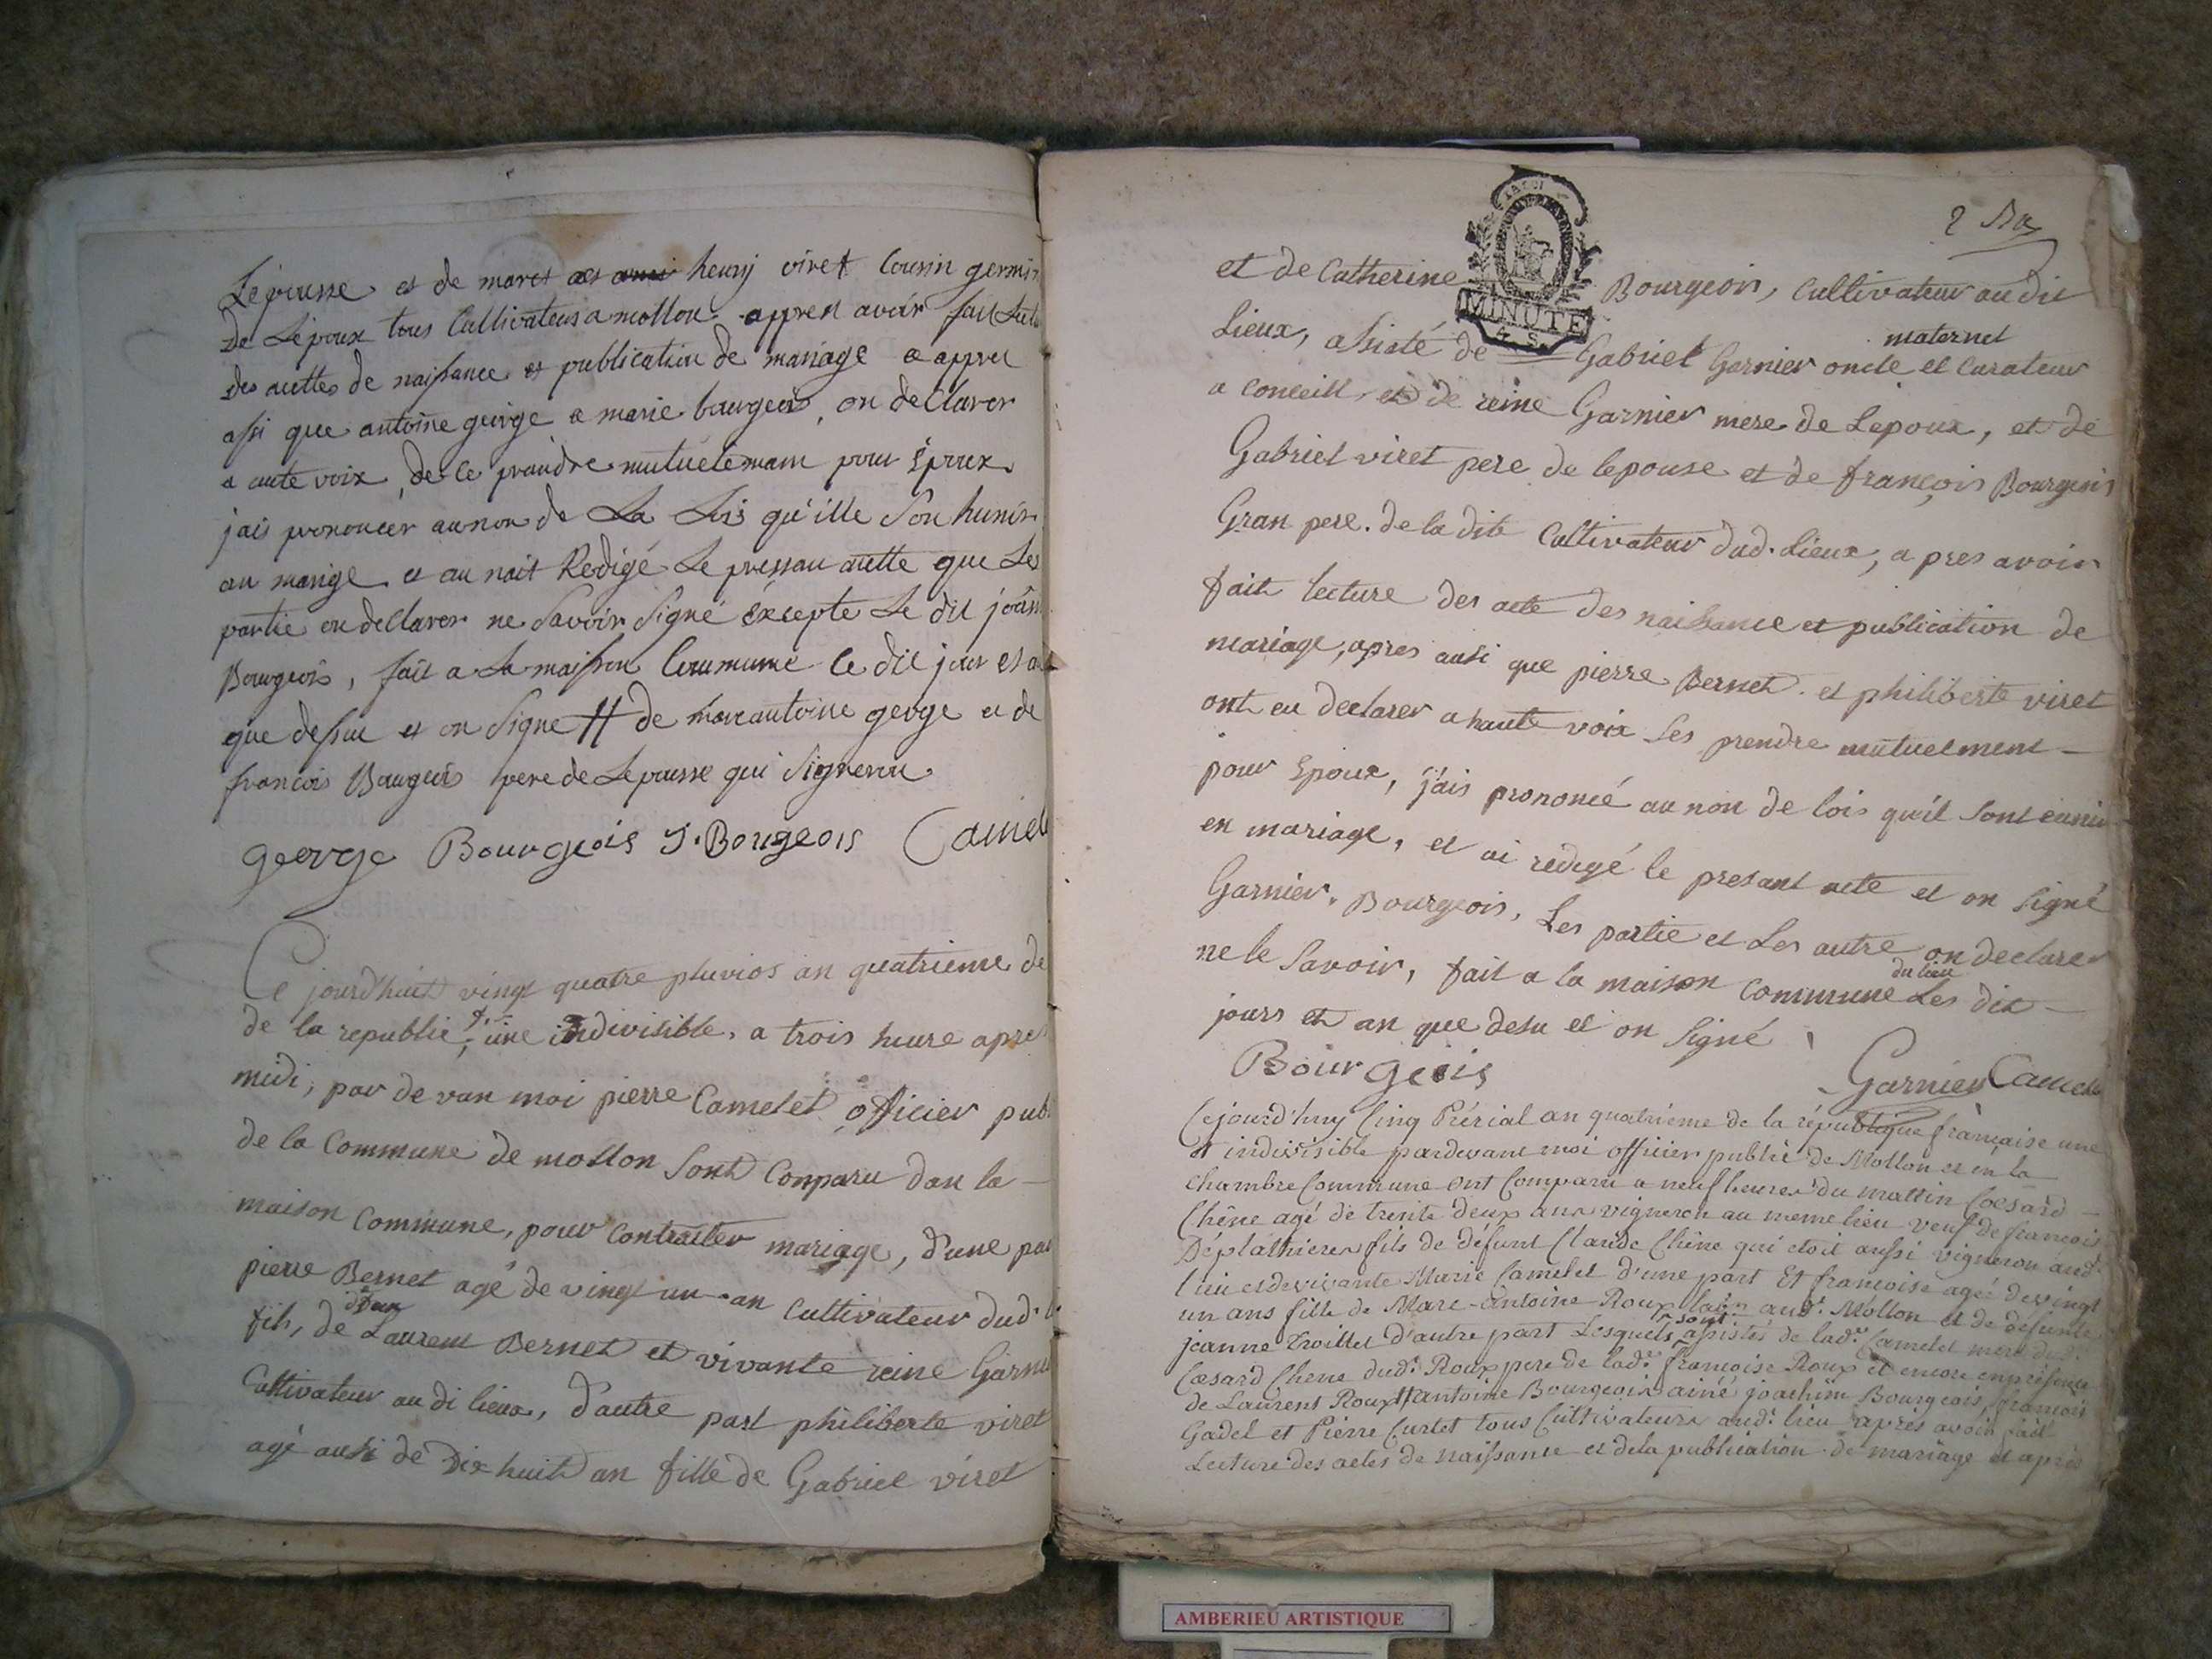 Lepousse et de maret henrij viret Cousin germin
de Lépoux tous Cultivateus a mollon appres avoir fait Lut
des acttes de naissance et publication de mariage a appre
assi que antoine george a marie bourgeois, on deClarer
a aute voix, de ce praindre mutuelemam pour Époux
jais prononcer au non de La Lois qu'ille son hunir
an marige et au nait Redigé Le pressau actte que Les
partie on declarer ne Savoir Signé éxcepte Le dit
Bourgeois, fait a La maison Coumune le dit jour et a
que dessue et on Signe # de marc antoine george et de
francois Bourgeois pere de Lepousse qui Signeron
george Bourgeois J. Bourgeois Camel
Ce jourd'huit vingt quatre pluvios an quatrieme de
de la republic, une indivisible, a trois heure apres
midi, par de van moi pierre Camelet officier publ
de la Commune de mollon Sont Comparu dan la
maison Commune, pour Contraiter mariage, d'une par
pierre Bernet agé de vingt un an Cultivateur dud. l
fils, de Laurent Bernet et vivante reine Garni
Cultivateur au di lieux, d'autre part philiberte viret
agé ausi de Dix huit an fille de Gabriel viret
2
et de Catherine Bourgeois, Cultivateur au dit
MINUTE
4. S.
maternel
Lieux, assisté de Gabriel Garnier oncle et Curateur
a Conceill, et de reine Garnier mere de Lepoux, et de
Gabriel viret pere de lepouse et de françois Bourgeois
Gran pere. de la dite Cultivateur dud. Lieux, a pres avoir
fait lecture des acte des naissance et publication de
mariage, apres ausi que pierre Bernet. et philiberte viret
ont eu declarer a haute voix Ses prendre mutuelment
pour Epoux, j'ais prononcé au non de lois qu'il Sont eunis
en mariage, et ai redigé le presant acte et on Signé
Garnier, Bourgeois, Les partie et Les autre on declarer
ne le Savoir, fait a la maison Commune du lieu Les dit
jours et an que desu et on Signé
Bourgeois Garnier Camelet
Cejourd'huy Cinq Prérial an quatrieme de la république française une
et indivisible pardevant moi officier public de Mollon et en la
Chambre Commune ont Comparu a neuf heures du mattin Coesard
Chêne agé de trente deux ans vigneron au meme lieu veuf de francoise
Déplathieres fils de défunt Claude Chêne qui etoit aussi vigneron aud.
lieu et de vivante Marie Camelet d'une part Et francoise agée de vingt
un ans fille de Marc-Antoine Roux aud. Mollon et de défunte
jeanne Troillet d'autre part Lesquels sont assistés de lad.e Camelet mere dud.
Coesard Chene dud. Roux pere de lad.e françoise Roux et encore en présence
de Laurent Roux # antoine Bourgeois ainé joachim Bourgeois francois
Gadel et Pierre Curtet tous Cultivateurs aud. lieu après avoir fait
Lecture des actes de naissance et de la publication de mariage et après
AMBERIEU ARTISTIQUE